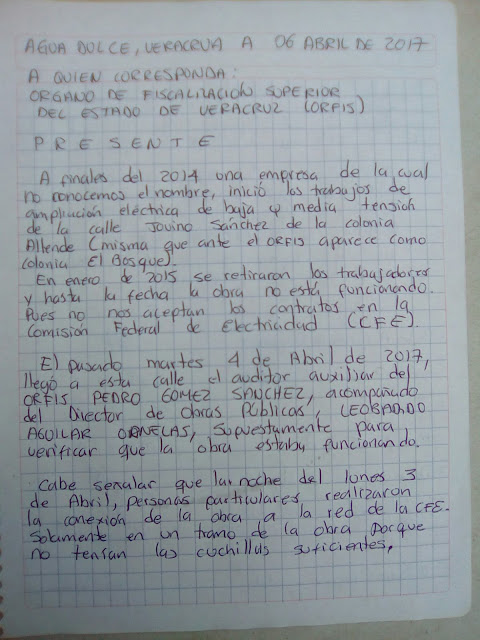 AGUA DULCE, VERACRUA A 06 ABRIL DE 2017
A QUIEN CORRESPONDA:
ORGANO DE FISCALIZACION SUPERIOR
DEL ESTADO DE VERACRUZ (ORFIS)
P R E S E N T E
A finales del 2014 una empresa de la cual
no conocemos el nombre, inició los trabajos de
ampliación eléctrica de baja y media tensión
de la calle Jovino Sánchez de la colonia
Allende (misma que ante el ORFIS aparece como
colonia El Bosque).
En enero de 2015 se retiraron los trabajadores
y hasta la fecha la obra no está funcionando.
Pues no nos aceptan los contratos en la
Comisión Federal de Electricidad (CFE).
El pasado martes 4 de Abril de 2017,
llegó a esta calle el auditor auxiliar del
ORFIS PEDRO GOMEZ SANCHEZ, acompañado
del Director de Obras Públicas, LEOBARDO
AGUILAR ORNELAS, supuestamente para
verificar que la obra estaba funcionando.
Cabe señalar que la noche del lunes 3
de Abril, personas particulares realizaron
la conexión de la obra a la red de la CFE.
Solamente en un tramo de la obra porque
no tenían las cuchillas suficientes.